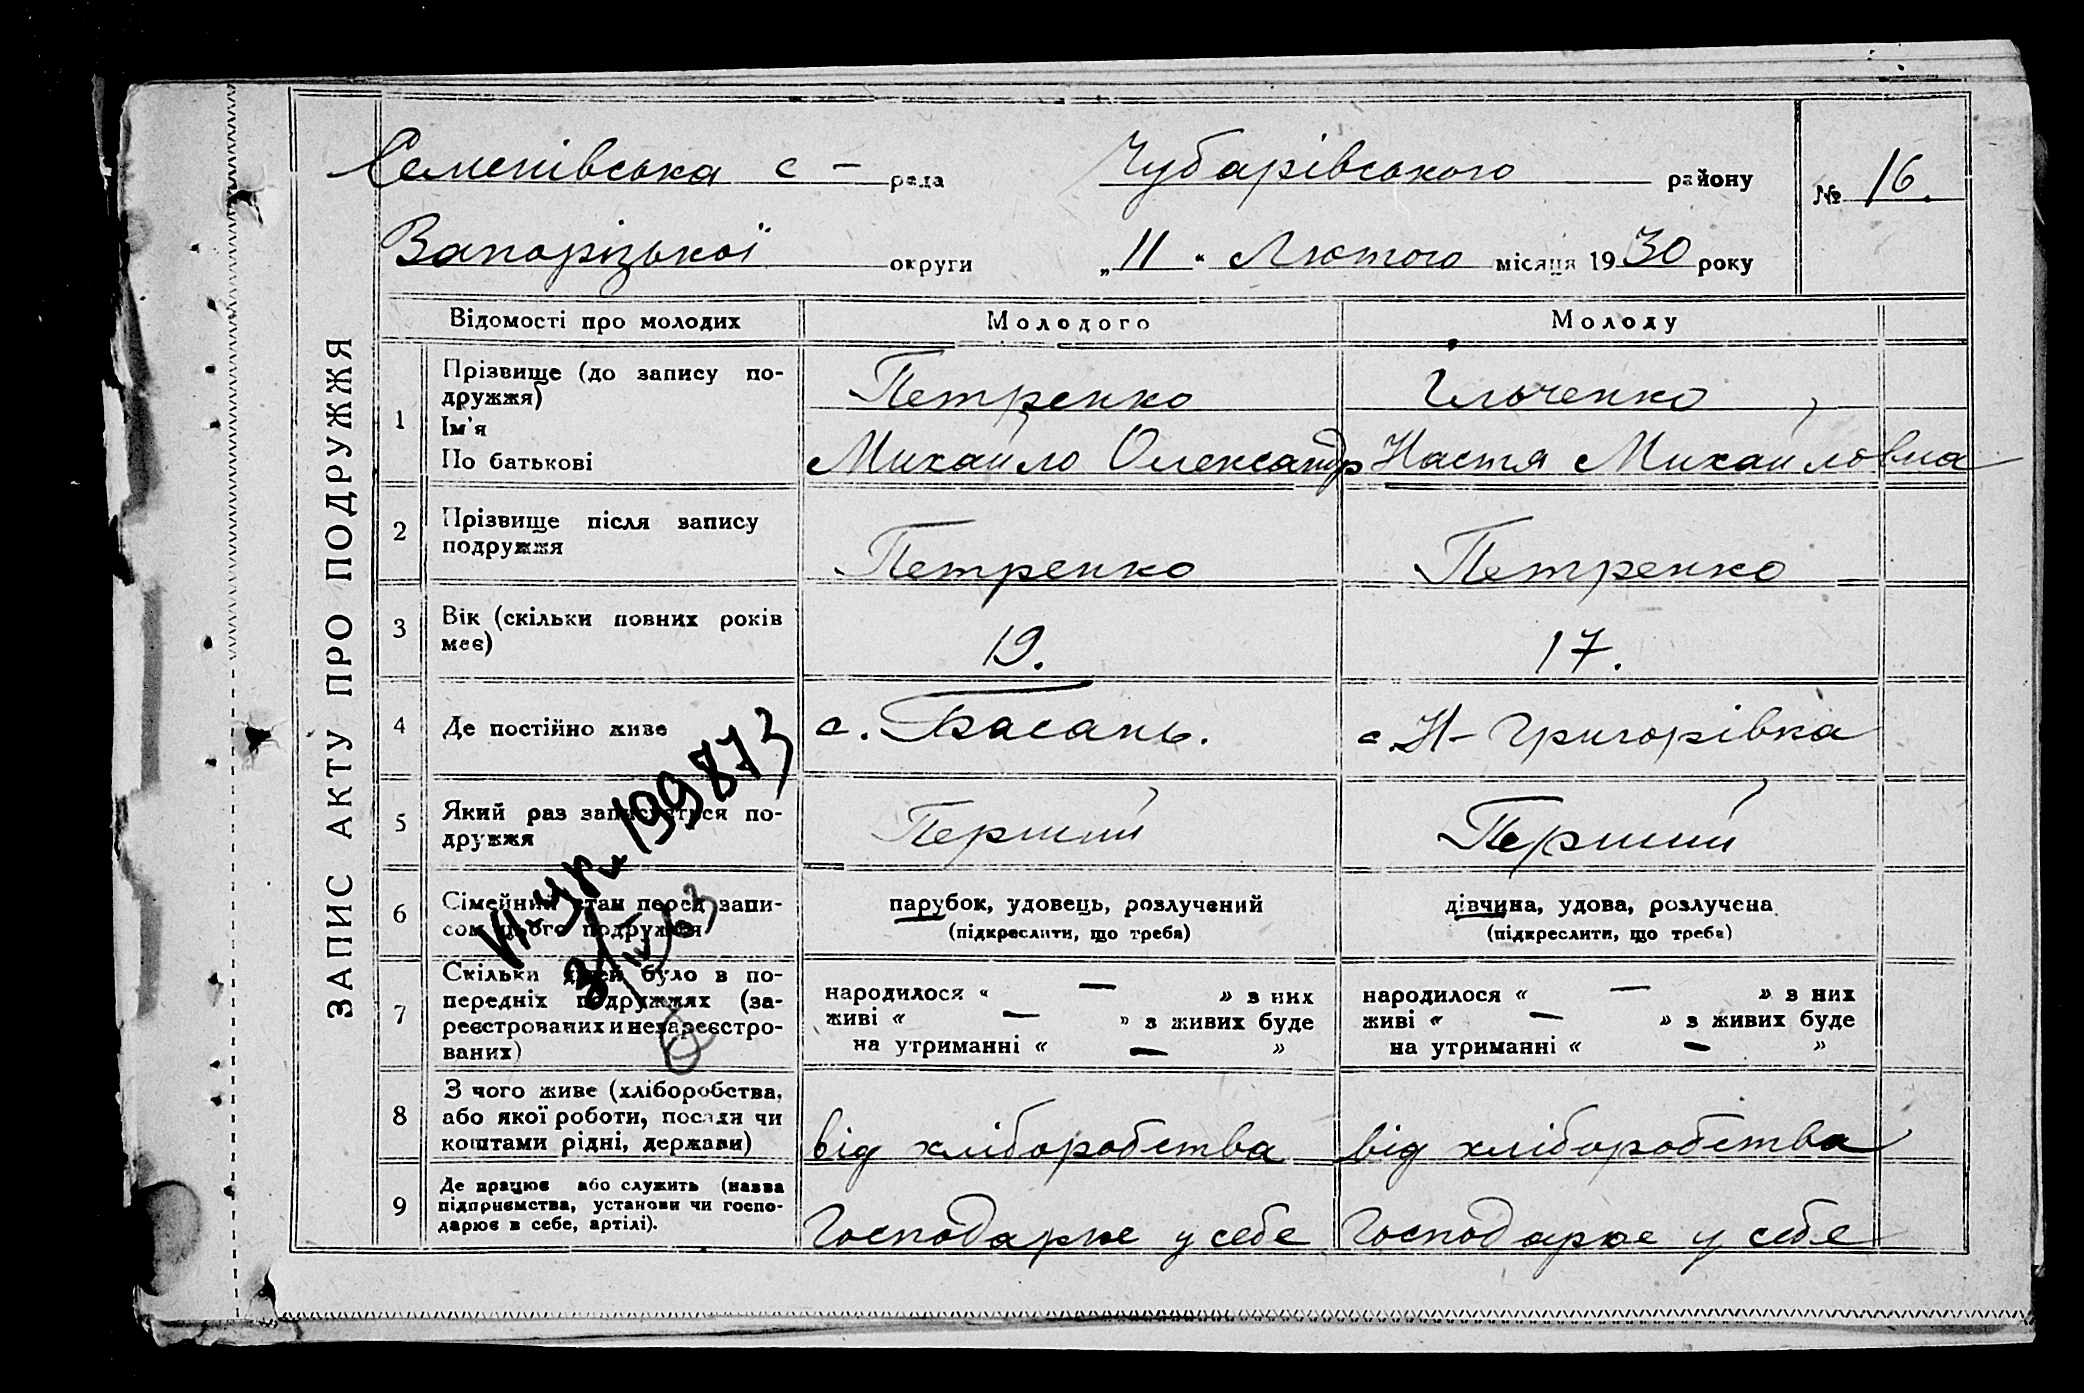 ЗАПИС АКТУ ПРО ПОДРУЖЖЯ
Семенівська с – рада Чубарівського району № 16.
Запорізької округи „11" Лютого місяця 1930 року
Відомості про молодих Молодого Молоду
1 Прізвище (до запису по-
дружжя)
Ім'я
По батькові
Петренко
Михайло Олександр
Ільченко
Настя Михайловна
2 Прізвище після запису
подружжя
Петренко Петренко
3 Вік (скільки повних років
має)
19. 17.
4 Де постійно живе с. Басань. с. Н-Григорівка
5 Який раз записується по-
дружжя
Перший Перший
6 Сімейний стан перед запи-
сом цього подружжя
парубок, удовець, розлучений
(підкреслити, що треба)
дівчина, удова, розлучена
(підкреслити, що треба)
7 Скільки дітей було в по-
передніх подружжях (за-
реєстрованих и незареєстро-
ваних)
народилося « — » з них
живі « — » з живих буде
на утриманні « — »
народилося « — » з них
живі « — » з живих буде
на утриманні « — »
8 З чого живе (хліборобства,
або якої роботи, посади чи
коштами рідні, держави)
від хліборобства від хліборобства
9 Де працює або служить (назва
підприємства, установи чи госпо-
дарює в себе, артілі).
Господарює у себе Господарює у себе
199873